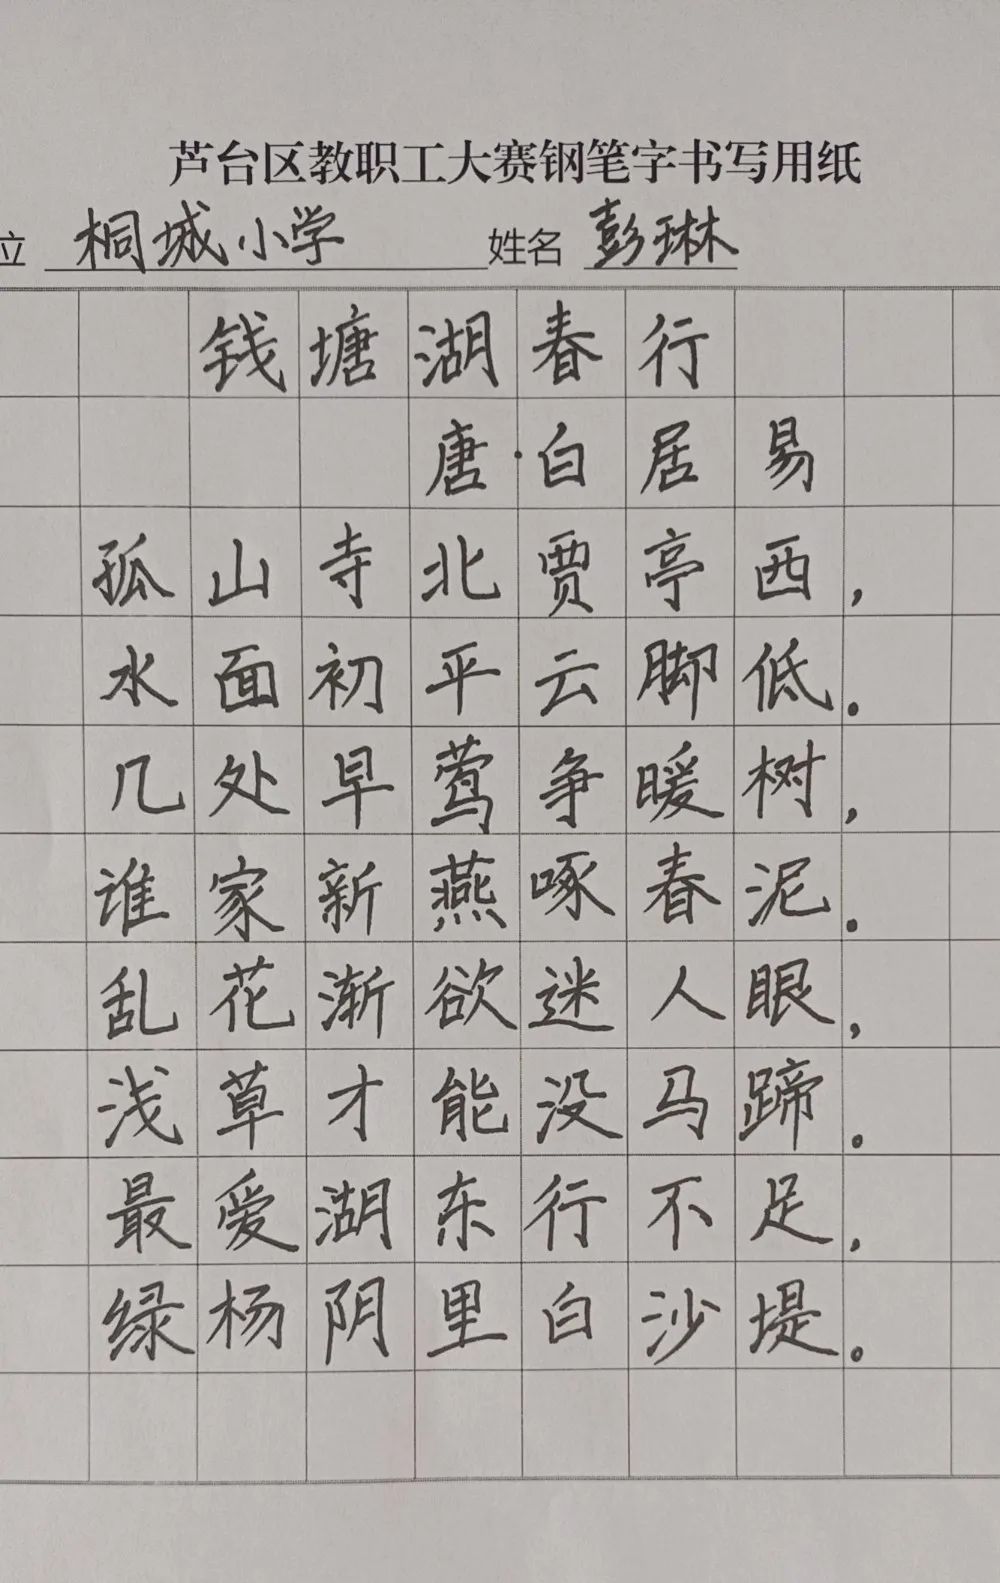 芦台区教职工大赛钢笔字书写用纸
位 桐城小学 姓名 彭琳
钱塘湖春行
唐·白居易
孤山寺北贾亭西，
水面初平云脚低。
几处早莺争暖树，
谁家新燕啄春泥。
乱花渐欲迷人眼，
浅草才能没马蹄。
最爱湖东行不足，
绿杨阴里白沙堤。